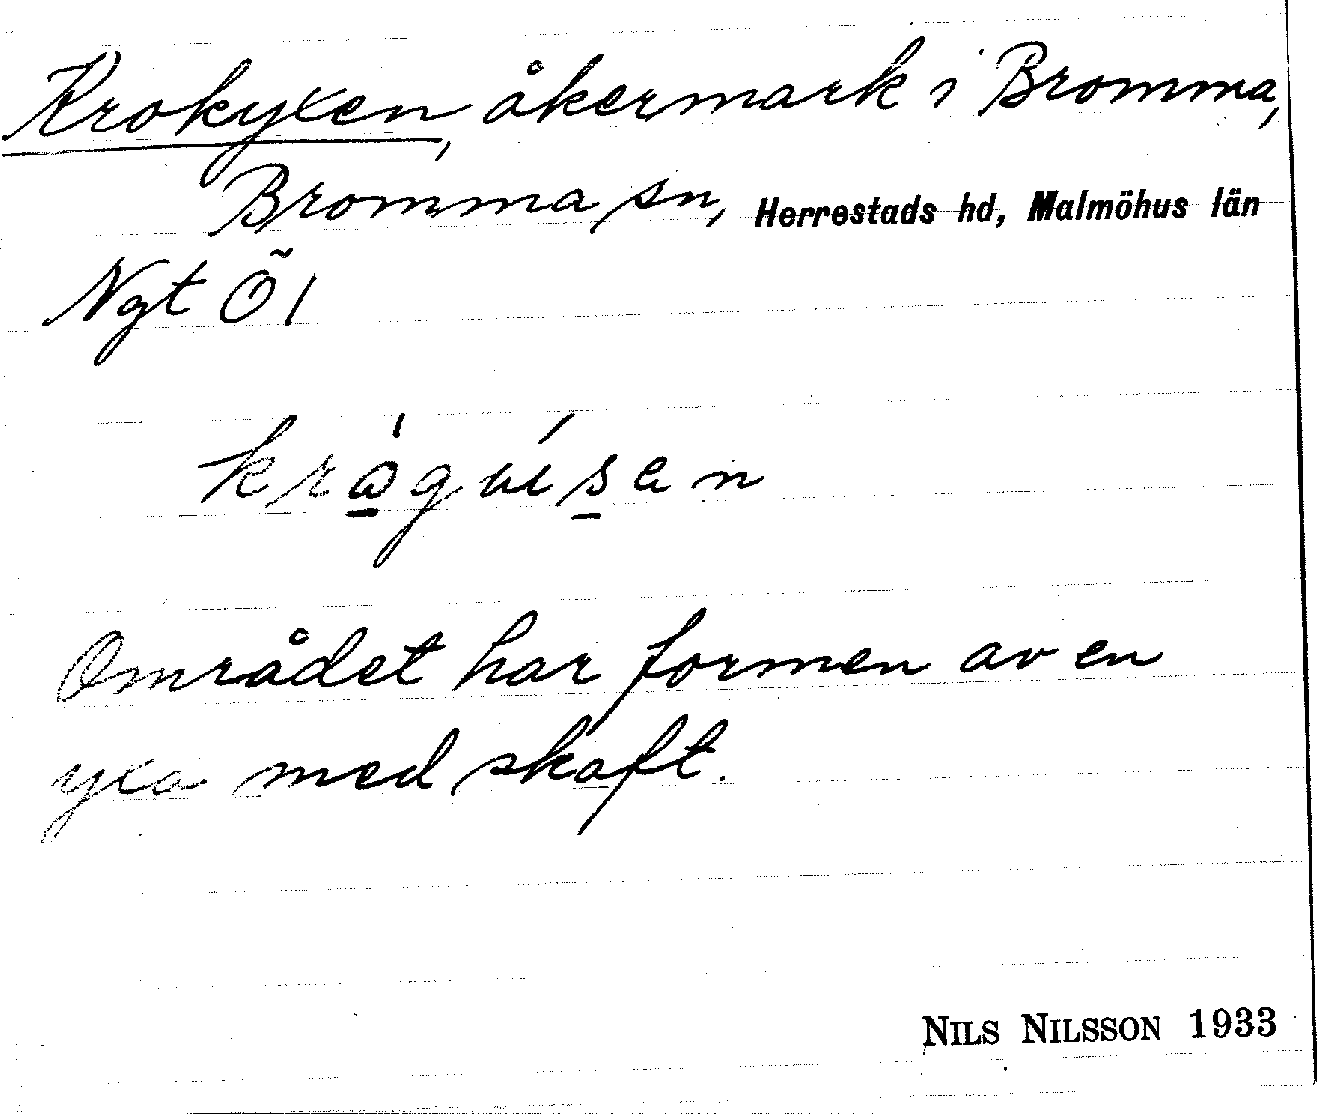 Krokyxen, åkermark i Bromma,
Bromma sn, Herrestads hd, Malmöhus län
Ngt Öl
Området har formen av en
yxa med skaft.
NILS NILSSON 1933